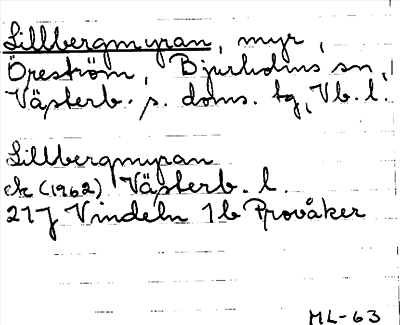 Lillbergmyran, myr,
Öreström, Bjurholms sn,
Västerb. s. doms. tg, Vb. l.
Lillbergmyran
ek (1962) Västerb. l.
21J Vindeln 1b Provåker
ML-63